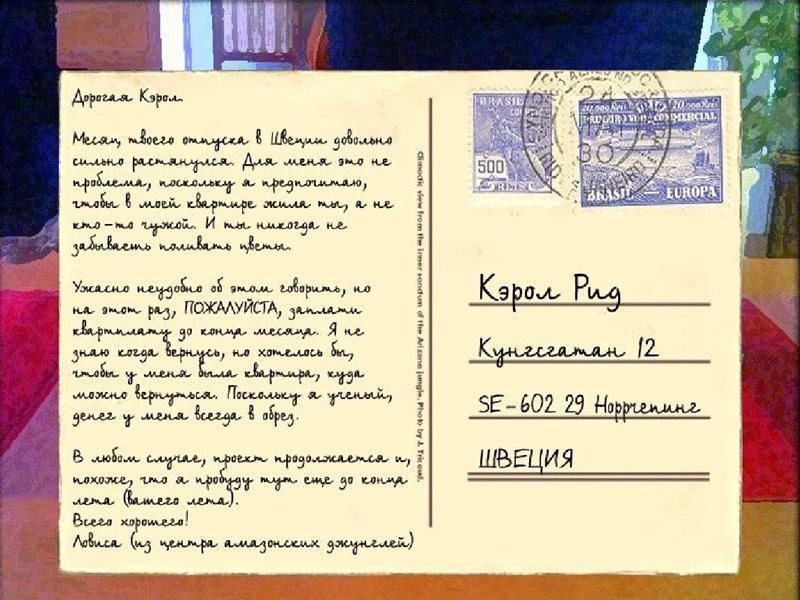 Дорогая Кэрол.
Месяц твоего отпуска в Швеции довольно
сильно растянулся. Для меня это не
проблема, поскольку я предпочитаю,
чтобы в моей квартире жила ты, а не
кто-то чужой. И ты никогда не
забываешь поливать цветы.
Ужасно неудобно об этом говорить, но
на этот раз, ПОЖАЛУЙСТА, заплати
квартплату до конца месяца. Я не
знаю когда вернусь, но хотелось бы,
чтобы у меня была квартира, куда
можно вернуться. Поскольку я ученый,
денег у меня всегда в обрез.
В любом случае, проект продолжается и,
похоже, что я пробуду тут еще до конца
лета (вашего лета).
Всего хорошего!
Ловиса (из центра амазонских джунглей)
view from the inner sanctum of the Arizona jungle. Photo by J. Tricoual.
BRASIL
500
REIS
20.000 Reis
COMMERCIAL
BRASIL EUROPA
Кэрол Рид
Кунгсгатан 12
SE-602 29 Норрчепинг
ШВЕЦИЯ